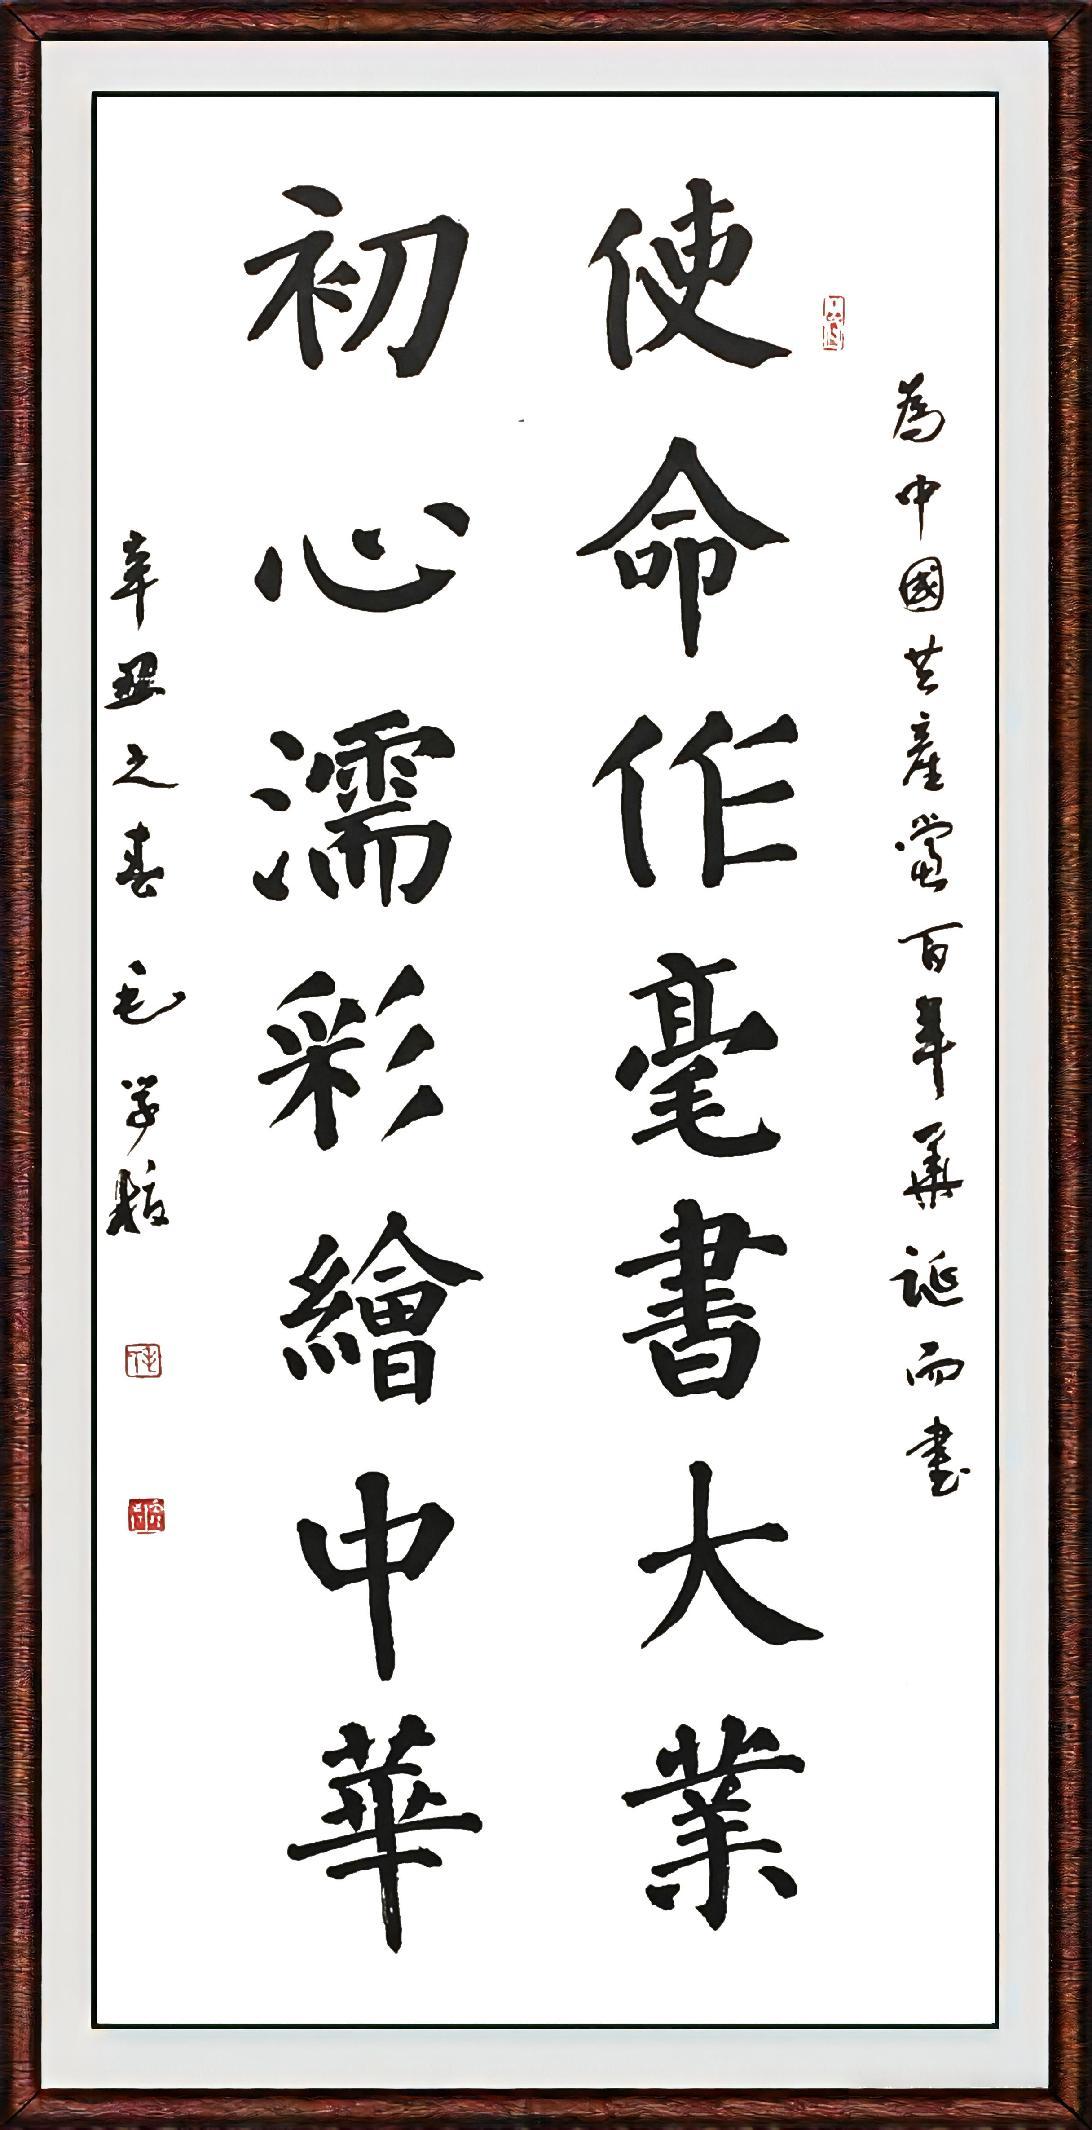 為中國共產黨百年華誕而書
使命作毫書大業
初心濡彩繪中華
辛丑之春 毛学